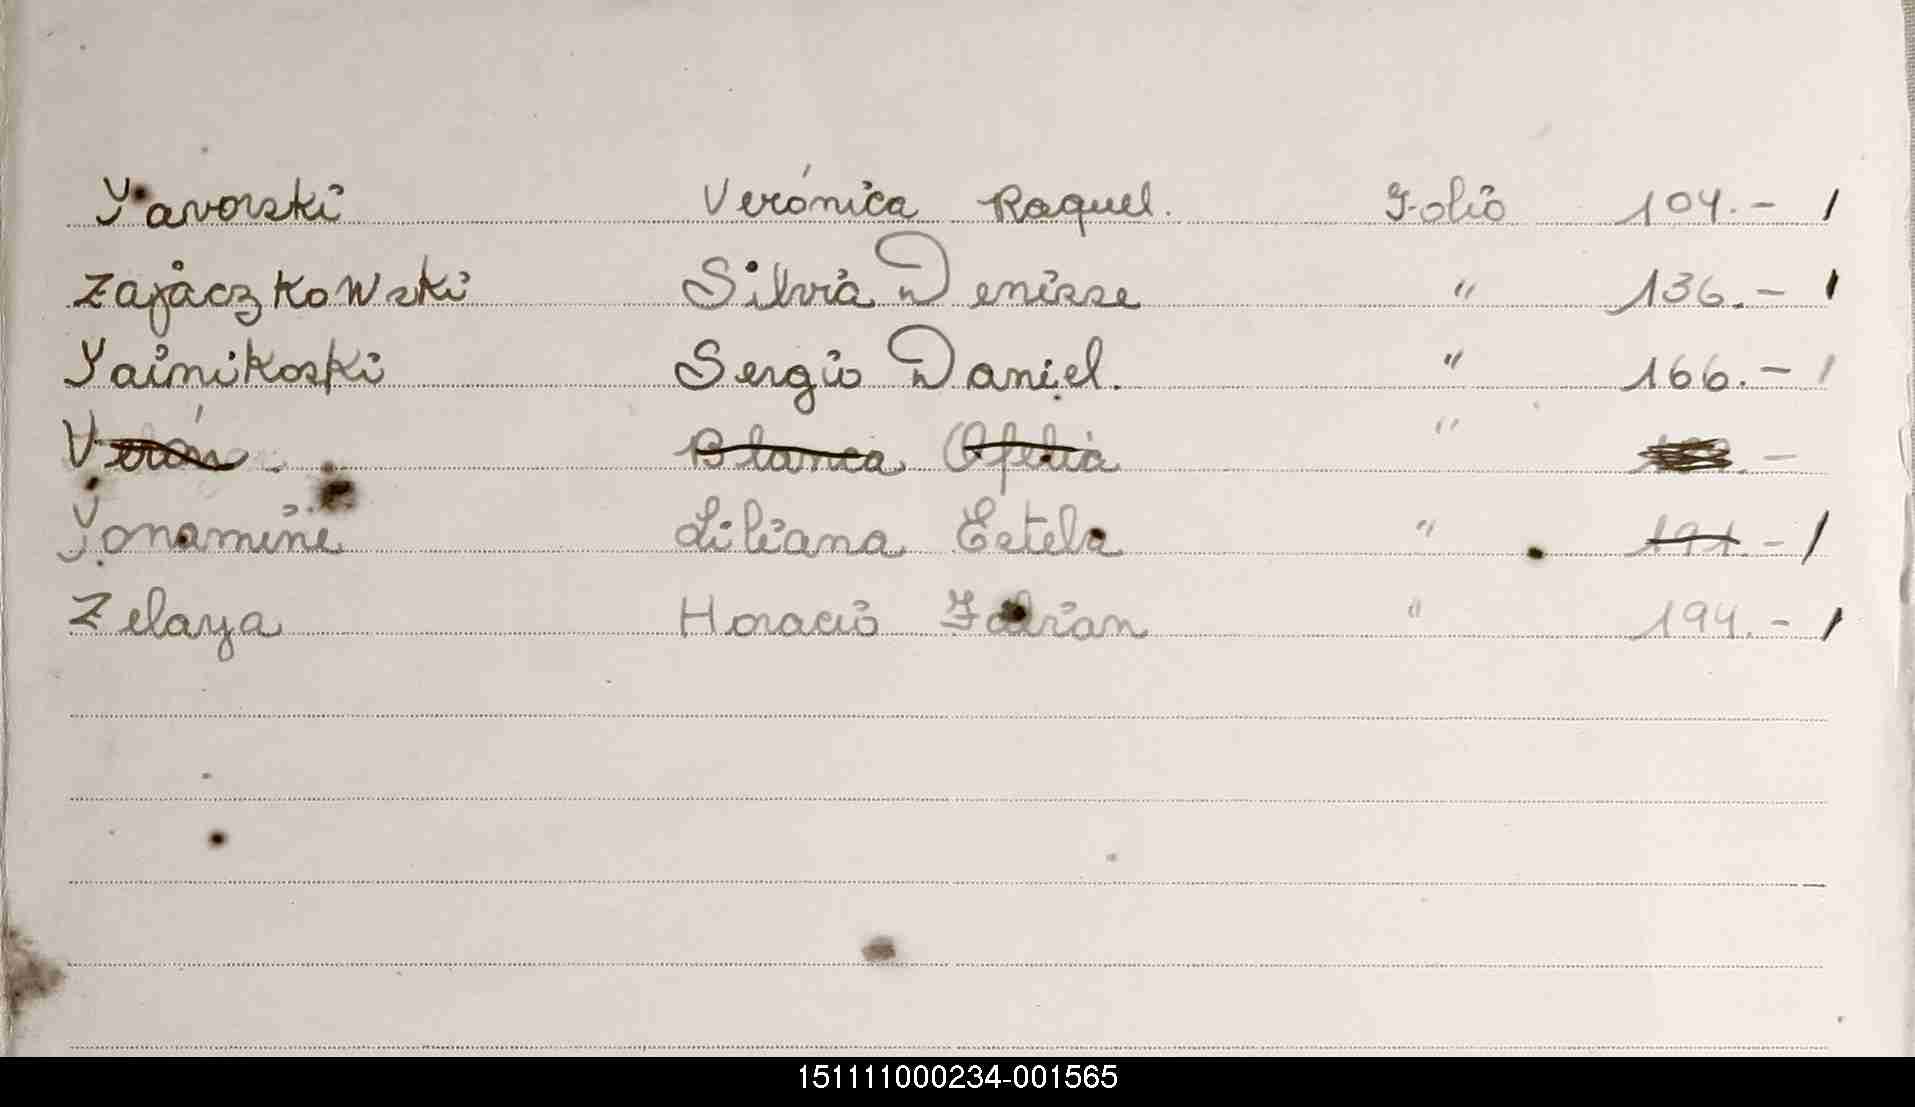 Yavorski Verónica Raquel. Folio 104.- /
Zajaczkowski Silvia Denisse " 136.- /
Yaimikoski Sergio Daniel. " 166.- /
Verón. Blanca Ofelia " -
Yonamine Liliana Estela " 191.- /
Zelaya Horacio Fabian " 194.- /
151111000234-001565